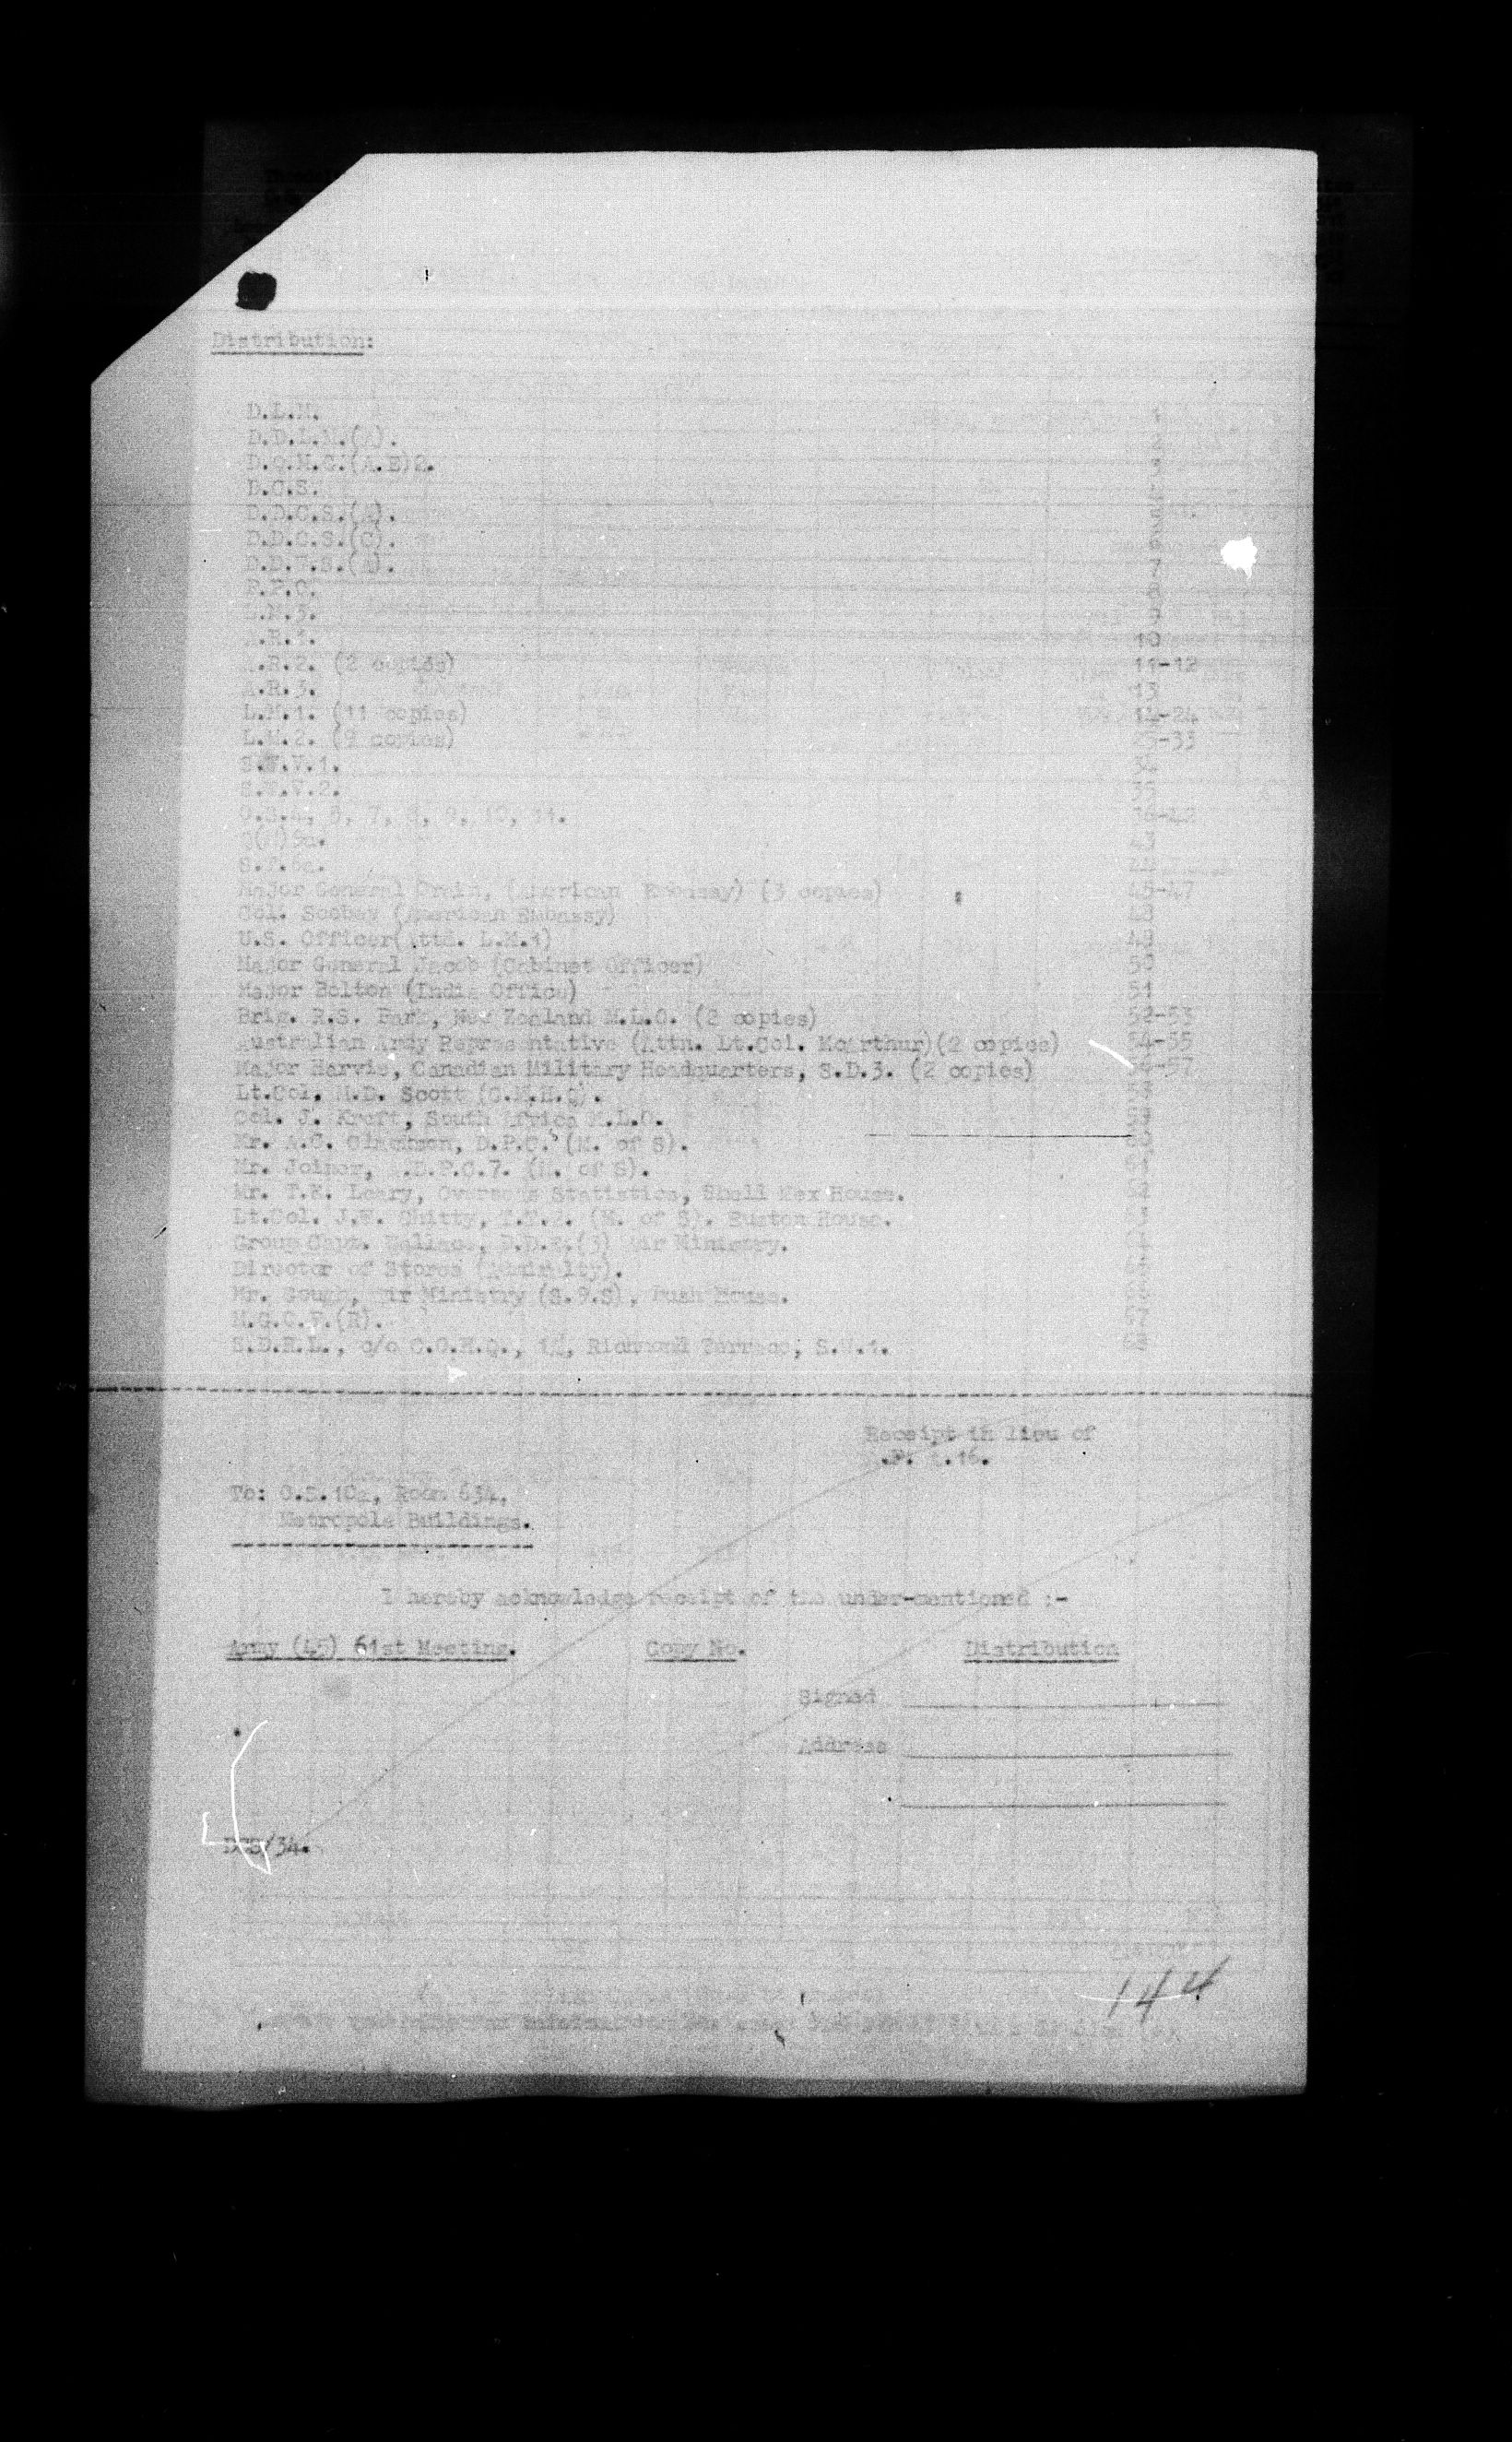 Distribution:
D.L.M. 1
D.D.L.M.(A). 2
D.Q.M.G.(A.E)2. 3
D.C.S.
D.D.C.S.(A).
D.D.C.S.(C).
D.D.W.S.(A). 7
F.F.C. 8
L.M.3. 9
A.R.1. 10
A.R.2. (2 copies) 11-12
A.R.3. 13
L.M.1. (11 copies) 14-24
L.M.2. (9 copies) 25-33
S.W.V.1. 34
S.W.V.2. 35
O.S.4, 5, 7, 8, 9, 10, 11. 36-42
43
44
Major General Crain, (American Embassy) (3 copies) 45-47
Col. Scobey (American Embassy) 48
U.S. Officer(Attd. L.M.3) 49
Major General Jacob (Cabinet Officer) 50
Major Bolton (India Office) 51
Brig. R.S. Park, New Zealand M.L.O. (2 copies) 52-53
Australian Army Representative (Attn. Lt.Col. McArthur)(2 copies) 54-55
Major Harvie, Canadian Military Headquarters, S.D.3. (2 copies) 56-57
Lt.Col. M.D. Scott (C.M.H.Q). 58
Col. J. Kreft, South Africa M.L.O. 59
Mr. A.C. D.P.C. (M. of S). 60
Mr. Joiner, A.D.P.C.7. (M. of S). 61
Mr. T.E. Leary, Overseas Statistics, Shell Mex House. 62
Lt.Col. J.F. Chitty, T.T.2. (M. of S). Euston House. 63
Group Capt. Wallace, (3) Air Ministry. 64
Director of Stores (Admiralty). 65
Mr. Gough, Air Ministry (S.9.S), Bush House. 66
M.G.O.F.(R). 67
S.D.H.L., c/o C.O.H.Q., 1A, Richmond Terrace, S.W.1. 68
Receipt in lieu of
A.F. A.16.
To: O.S.10a, Room 634,
Metropole Buildings.
I hereby acknowledge receipt of the under-mentioned :-
Army (45) 61st Meeting. Copy No. Distribution
Signed
Address
DCS/34.
144